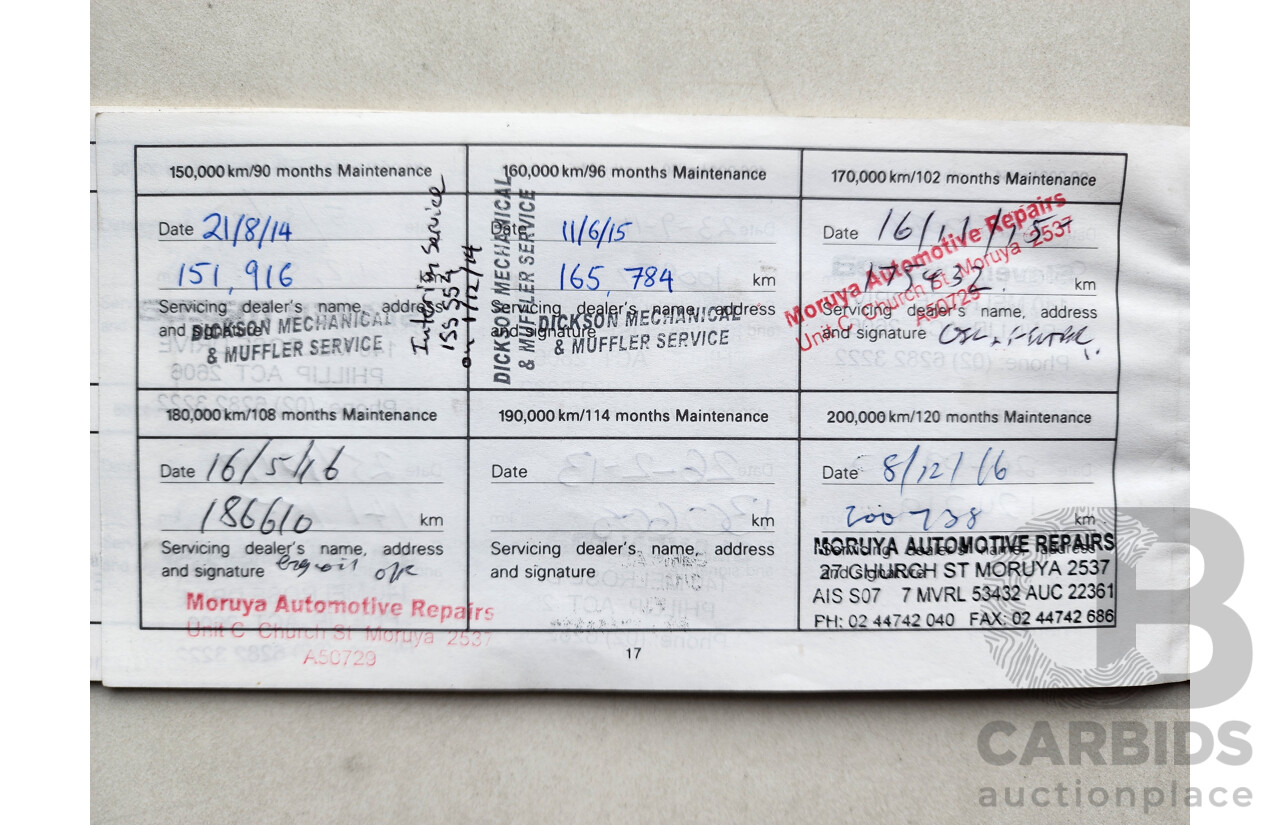 150,000 km/90 months Maintenance
Date 21/8/14
151,916
Servicing dealer's name, address
and signature
DICKSON MECHANICAL
& MUFFLER SERVICE
Interim Service
155 557
on 1/12/14
160,000 km/96 months Maintenance
Date 11/6/15
165,784 km
Servicing dealer's name, address
and signature
DICKSON MECHANICAL
& MUFFLER SERVICE
DICKSON MECHANICAL
& MUFFLER SERVICE
170,000 km/102 months Maintenance
Date 16/11/15
175832 km
Servicing dealer's name, address
and signature
Moruya Automotive Repairs
Unit C Church St Moruya 2537
A50729
180,000 km/108 months Maintenance
Date 16/5/16
186610 km
Servicing dealer's name, address
and signature
Moruya Automotive Repairs
Unit C Church St Moruya 2537
A50729
190,000 km/114 months Maintenance
Date
km
Servicing dealer's name, address
and signature
200,000 km/120 months Maintenance
Date 8/12/16
200738 km
Servicing dealer's name, address
and signature
MORUYA AUTOMOTIVE REPAIRS
27 CHURCH ST MORUYA 2537
AIS S07 7 MVRL 53432 AUC 22361
PH: 02 44742 040 FAX: 02 44742 686
17
CARBIDS
auctionplace